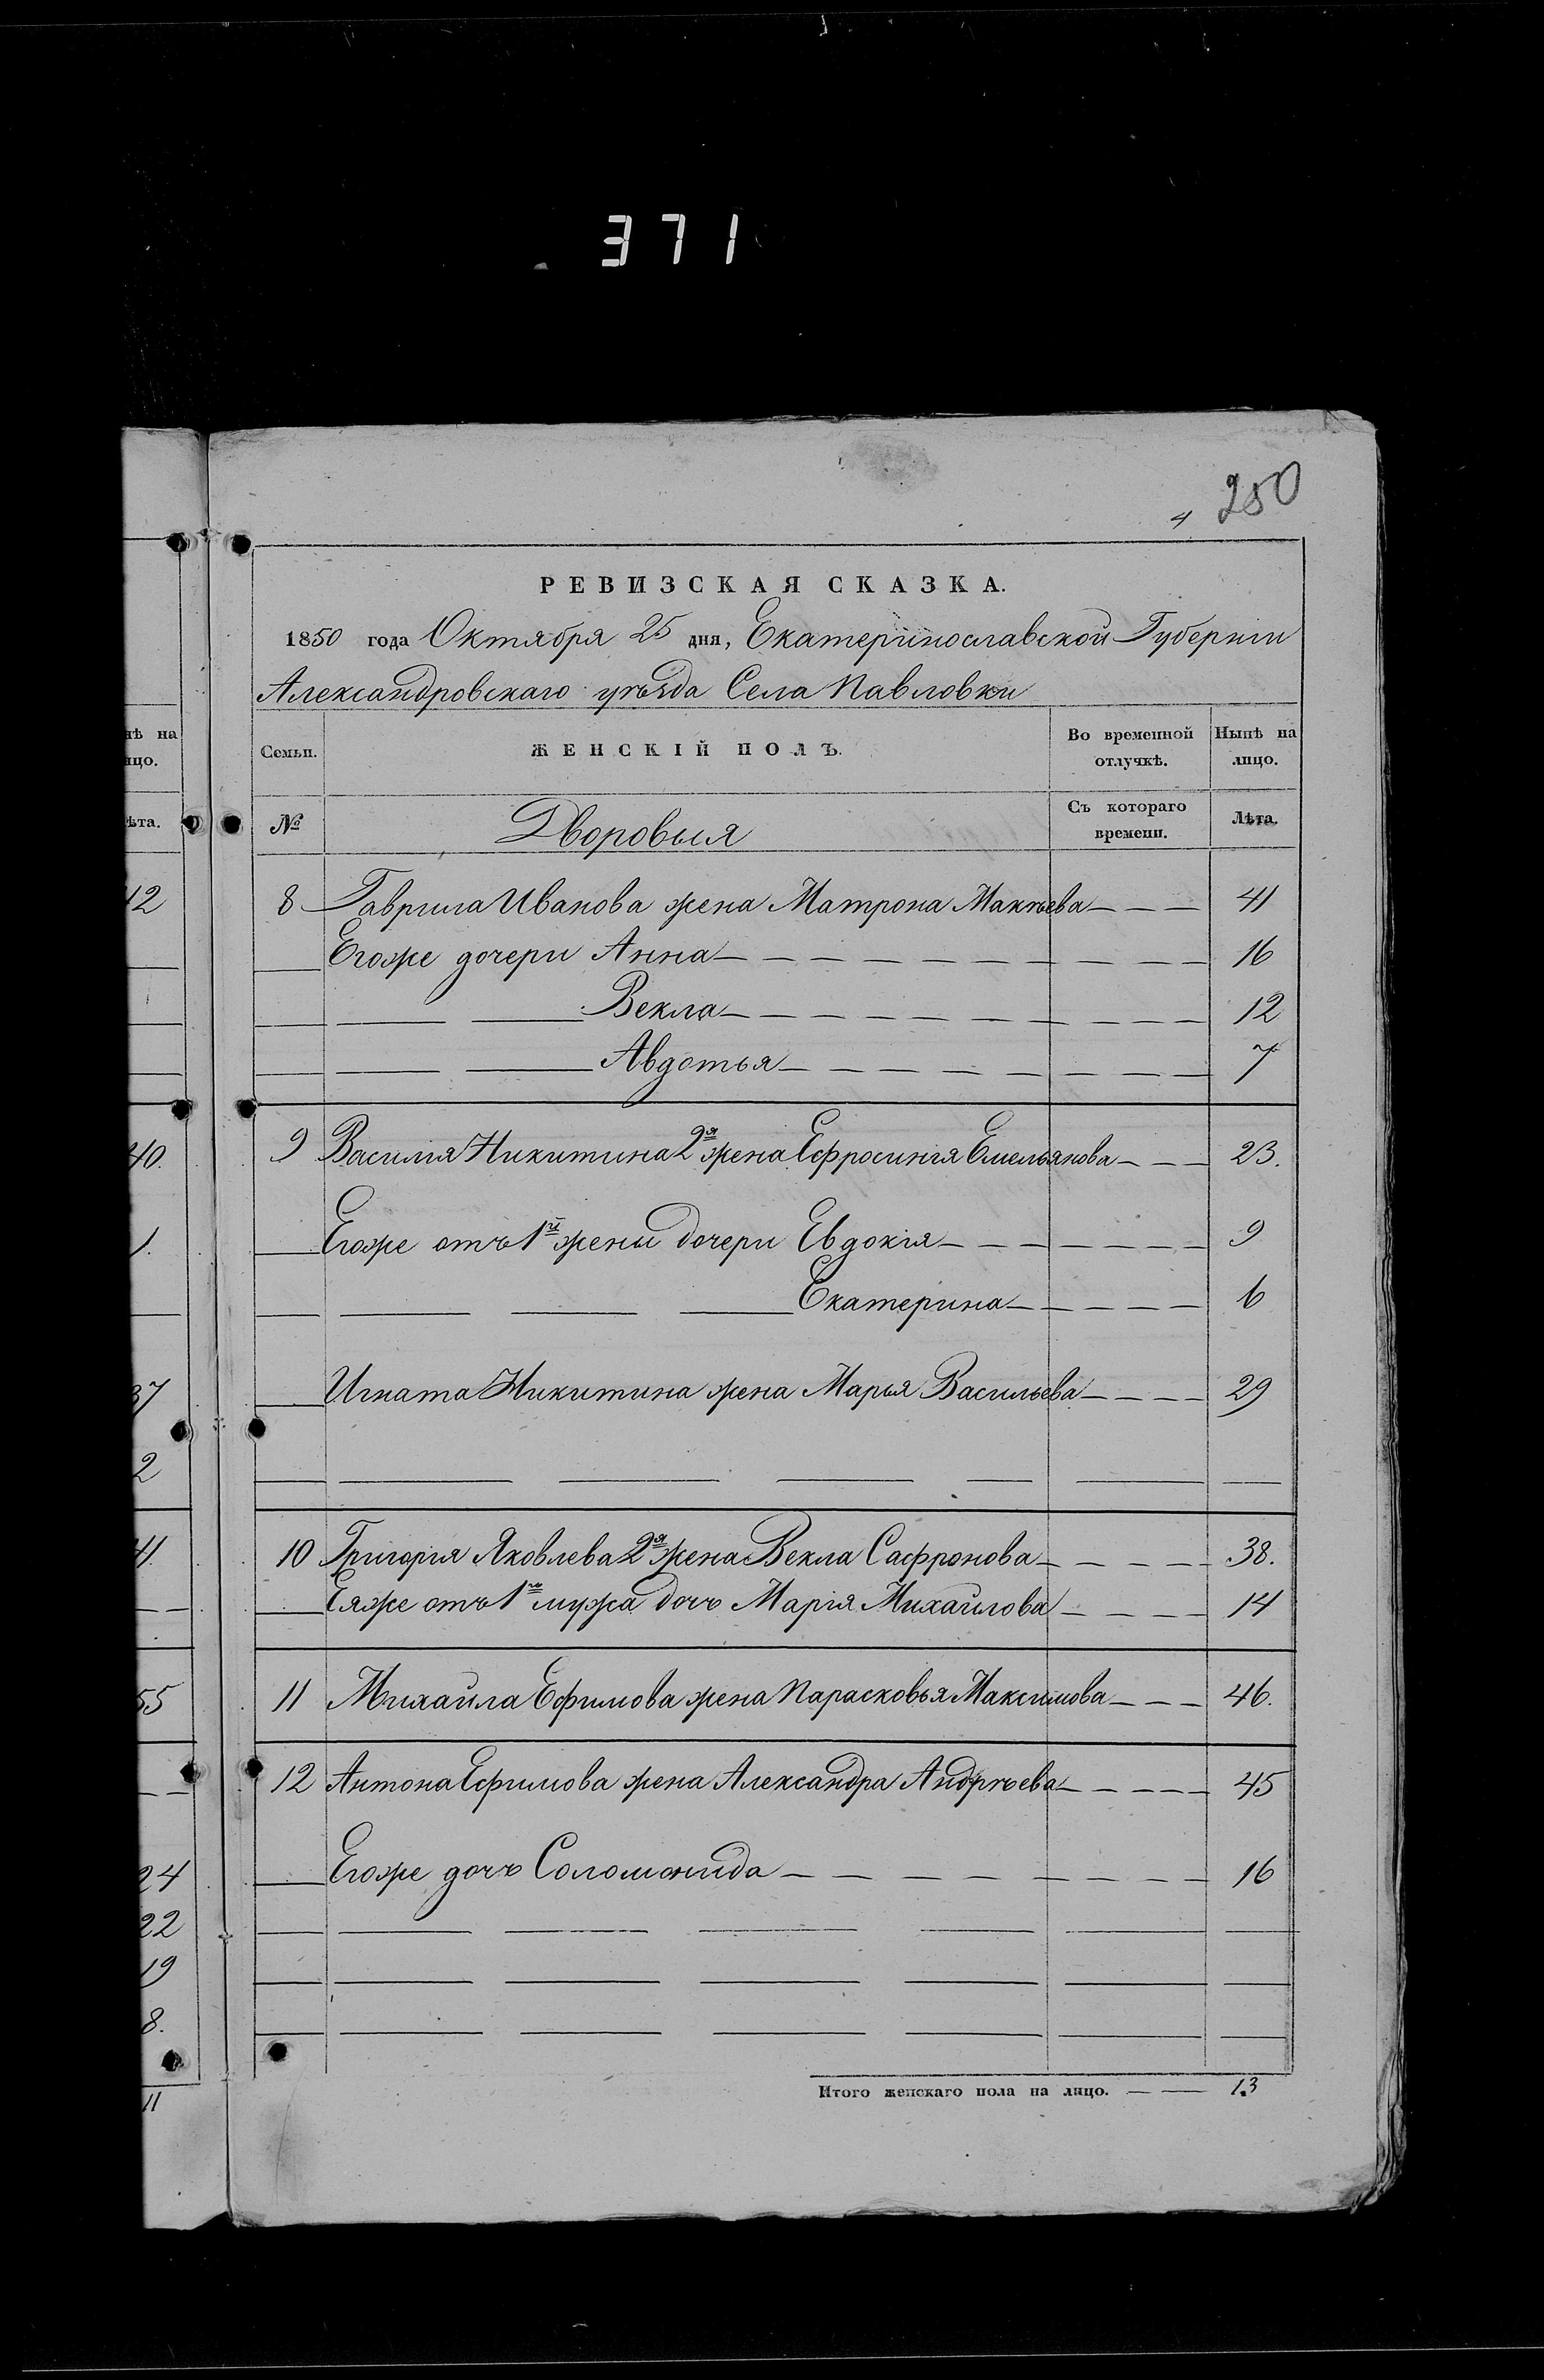 371
4 250
РЕВИЗСКАЯ СКАЗКА.
1850 года Октября 25 дня, Екатеринославской Губерніи
Александровскаго уѣзда Села Павловки
Семьи. ЖЕНСКІЙ ПОЛЪ. Во временной отлучкѣ. Нынѣ на лицо.
№ Дворовыя Съ котораго времени. Лѣта.
8 Гаврила Иванова жена Матрона Макѣева 41
Егоже дочери Анна 16
Векла 12
Авдотья 7
9 Василія Никитина 2я жена Ефросинія Емельянова 23.
Егоже отъ 1й жены дочери Евдокія 9
Екатерина 6
Игната Никитина жена Марья Васильева 29
10 Григорія Яковлева 2я жена Векла Сафронова 38.
Еяже отъ 1го мужа дочь Марія Михайлова 14
11 Михайла Ефимова жена Парасковья Максимова 46.
12 Антона Ефимова жена Александра Андрѣева 45
Егоже дочь Соломонида 16
Итого женскаго пола на лицо. 13
нѣ на
ицо.
ѣта.
12
40.
1.
37
2
41.
55
24
22
19
8.
11